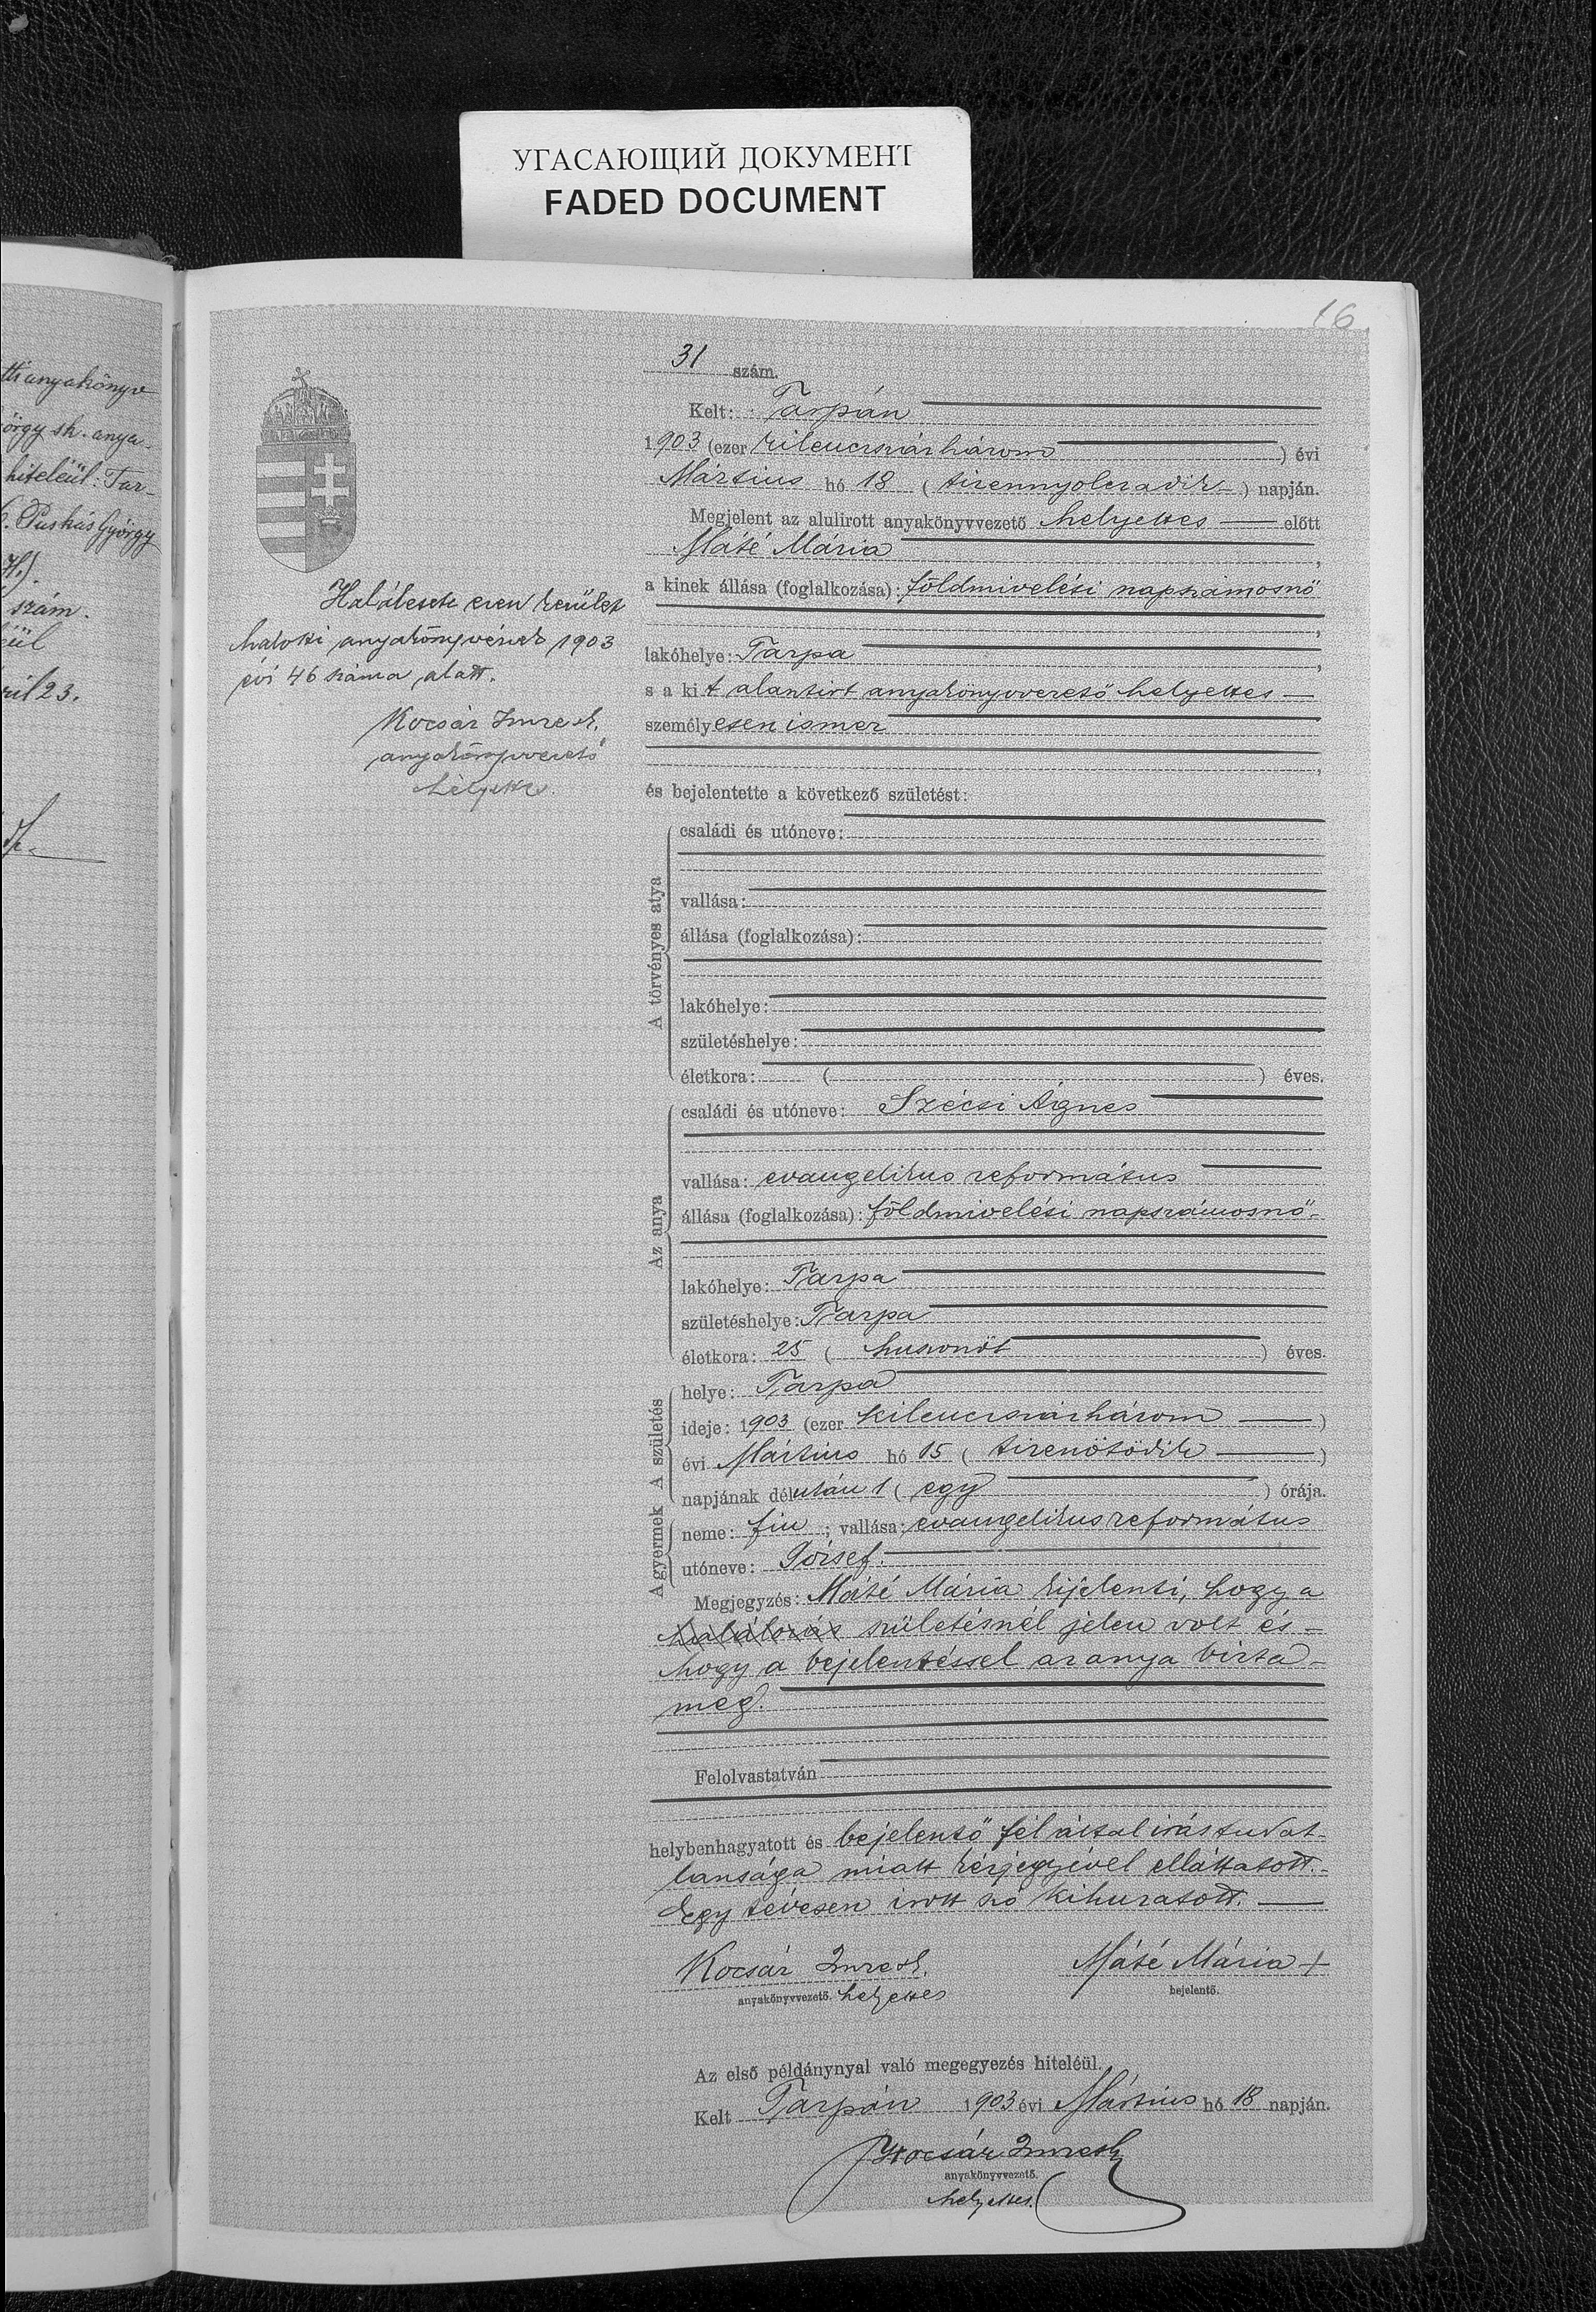 УГАСАЮЩИЙ ДОКУМЕНТ
FADED DOCUMENT
16
tti anyakönyv
örgy sk. anya-
hiteléül: Tar-
Puskás György
H.)
szám.
éül
ril 23.
31 szám.
Kelt: Tarpán
1903 (ezer kilenczszázhárom) évi
Mártius hó 18 (tizennyolczadik) napján.
Megjelent az alulirott anyakönyvvezető helyettes előtt
Máté Mária,
a kinek állása (foglalkozása): földmivelési napszámosnő
,
lakóhelye: Tarpa,
s a kit alantirt anyakönyvvezető helyettes
személyesen ismer
,
és bejelentette a következő születést:
Halálesete ezen kerület
halotti anyakönyvének 1903
évi 46 száma alatt.
Kocsár Imre sk.
anyakönyvvezető
helyettes.
A törvényes atya
családi és utóneve:
vallása:
állása (foglalkozása):
lakóhelye:
születéshelye:
életkora: ( ) éves.
Az anya
családi és utóneve: Szécsi Ágnes
vallása: evangelikus református
állása (foglalkozása): földmivelési napszámosnő
lakóhelye: Tarpa
születéshelye: Tarpa
életkora: 25 (huszonöt) éves.
A születés
helye: Tarpa
ideje: 1903 (ezer kilenczszázhárom)
évi Mártius hó 15 (tizenötödik)
napjának délután 1 (egy) órája.
A gyermek
neme: fiu; vallása: evangelikus református
utóneve: József.
Megjegyzés: Máté Mária kijelenti, hogy a
halálozás születésnél jelen volt és
hogy a bejelentéssel az anya bizta
meg.
Felolvastatván
helybenhagyatott és bejelentő fél által irástudat-
lansága miatt kézjegyével elláttatott.
Egy tévesen irott szó kihuzatott.
Kocsár Imre sk. Máté Mária +
anyakönyvvezető. helyettes bejelentő.
Az első példánynyal való megegyezés hiteléül.
Kelt Tarpán 1903 évi Mártius hó 18 napján.
Kocsár Imre sk
anyakönyvvezető.
helyettes.